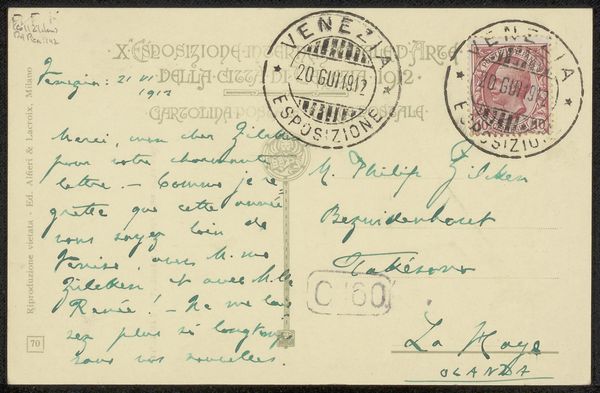 X.ª ESPOSIZIONE INTERNAZIONALE D'ARTE
DELLA CITTÀ DI VENEZIA 1912
CARTOLINA POSTALE
VENEZIA
20 GIU 1912
ESPOSIZIONE
VENEZIA
20 GIU 1912
ESPOSIZIONE
10
Venezia: 21 VI
1912
Merci, mon cher Zilcken
pour votre charmante
lettre. – Comme je re
grette que cette année
vous soyez loin de
Venise, avec M.me
Zilcken et avec M.lle
Renée! – Ne me lais
sez plus si longtemps
sans vos nouvelles.
M. Philip Zilcken
Bezuidenhout
La Haye
OLANDA
C 160
Riproduzione vietata - Ed. Alfieri & Lacroix, Milano
70